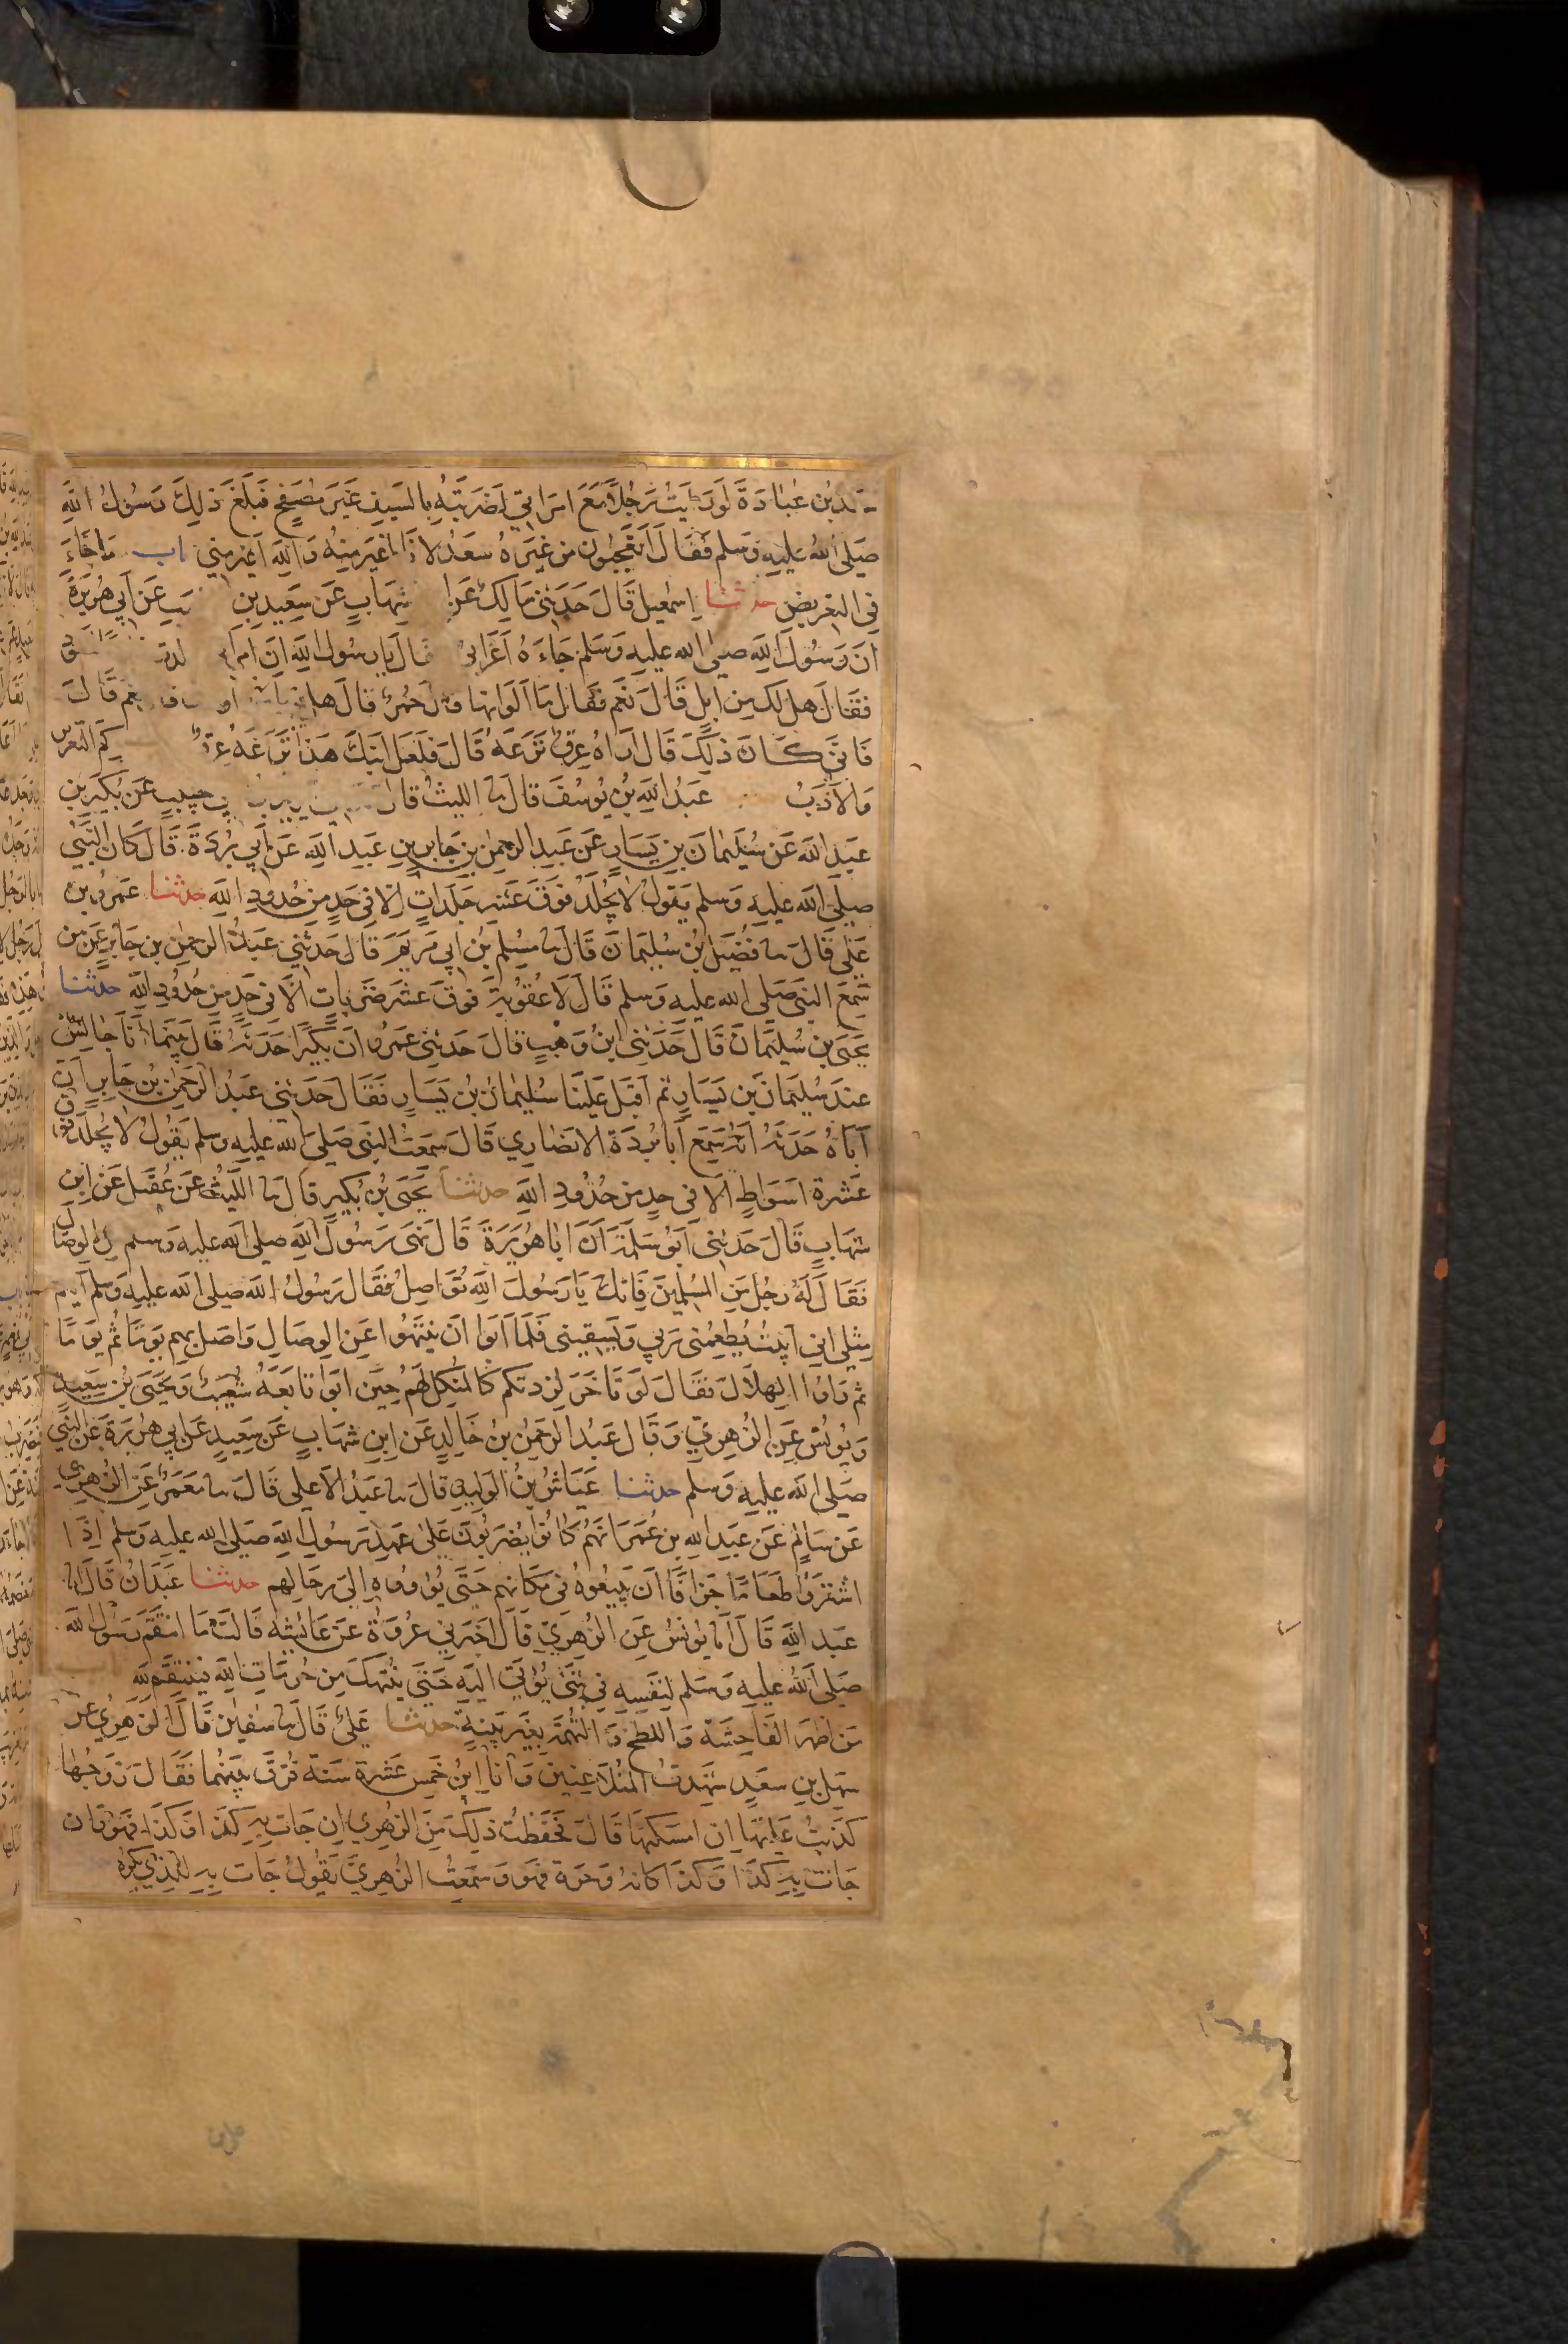 سعد بن عبادة لو رايت رجلا مع امراتي لضربته بالسيف غير مصفح فبلغ ذلك رسول الله
صلى الله عليه وسلم فقال اتعجبون من غيرة سعد لانا اغير منه والله اغير مني باب ما جاء
في التعريض حدثنا اسمعيل قال حدثني مالك عن شهاب عن سعيد بن عن ابي هريرة
ان رسول الله صلى الله عليه وسلم جاءه اعرابي فقال يا رسول الله ان امراتي ولدت
فقال هل لك من ابل قال نعم فقال ما الوانها قال حمر قال هل نعم قال
فانى كان ذلك قال اراه عرق نزعه قال فلعل ابنك هذا نزعه عرق كم التعزير
والادب عبد الله بن يوسف قال نا الليث قال حبيب عن بكير بن
عبد الله عن سليمان بن يسار عن عبد الرحمن بن جابر بن عبد الله عن ابي بردة قال كان النبي
صلى الله عليه وسلم يقول لا يجلد فوق عشر جلدات الا في حد من حدود الله حدثنا عمرو بن
علي قال نا فضيل بن سليمان قال نا مسلم بن ابي مريم قال حدثني عبد الرحمن بن جابر عمن
سمع النبي صلى الله عليه وسلم قال لا عقوبة فوق عشر ضربات الا في حد من حدود الله حدثنا
يحيى بن سليمان قال حدثني ابن وهب قال حدثني عمرو ان بكيرا حدثه قال بينما انا جالس
عند سليمان بن يسار ثم اقبل علينا سليمان بن يسار فقال حدثني عبد الرحمن بن جابر ان
اباه حدثه انه سمع ابا بردة الانصاري قال سمعت النبي صلى الله عليه وسلم يقول لا يجلد فوق
عشرة اسواط الا في حد من حدود الله حدثنا يحيى بن بكير قال نا الليث عن عقيل عن ابن
شهاب قال حدثني ابو سلمة ان ابا هريرة قال نهى رسول الله صلى الله عليه وسلم الوصال
فقال له رجل من المسلمين فانك يا رسول الله تواصل فقال رسول الله صلى الله عليه وسلم ايكم
مثلي اني ابيت يطعمني ربي ويسقيني فلما ابوا ان ينتهوا عن الوصال واصل بهم يوما ثم يوما
ثم راوا الهلال فقال لو تاخر لزدتكم كالمنكل لهم حين ابوا تابعه شعيب ويحيى بن سعيد
ويونس عن الزهري وقال عبد الرحمن بن خالد عن ابن شهاب عن سعيد عن ابي هريرة عن النبي
صلى الله عليه وسلم حدثنا عياش بن الوليد قال نا عبد الاعلى قال نا معمر عن الزهري
عن سالم عن عبد الله بن عمر انهم كانوا يضربون على عهد رسول الله صلى الله عليه وسلم اذا
اشتروا طعاما جزافا ان يبيعوه في مكانهم حتى يؤووه الى رحالهم حدثنا عبدان قال انا
عبد الله قال انا يونس عن الزهري قال اخبرني عروة عن عائشة قالت ما انتقم رسول الله
صلى الله عليه وسلم لنفسه في شئ يؤتى اليه حتى ينتهك من حرمات الله فينتقم لله
من اظهر الفاحشة واللطخ والتهمة بغير بينة حدثنا علي قال نا سفين قال الزهري عن
سهل بن سعد شهدت المتلاعنين وانا ابن خمس عشرة سنة فرق بينهما فقال زوجها
كذبت عليها ان امسكتها قال فحفظت ذلك من الزهري ان جات به كذا وكذا فهو وان
جات به كذا وكذا كانه وحرة فهو وسمعت الزهري يقول جات به للذي يكره